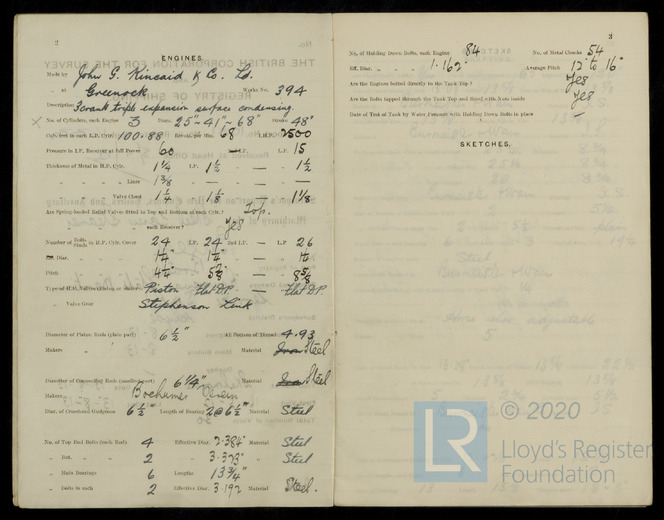 2
ENGINES.
Made by John G. Kincaid & Co. Ld.
at Greenock Works No. 394
Description 3 crank triple expansion surface condensing.
No. of Cylinders, each Engine 3 Diam. 25"-41"-68" Stroke 48"
Cub. feet in each L.P. Cylr. 100.88 Revols. per Min. 68 I.H.P. 2500
Pressure in I.P. Receiver at full Power 60 L.P. 15
Thickness of Metal in H.P. Cylr. 1 1/4 I.P. 1 1/2 — L.P. 1 1/2
" " " Liner 1 3/8 — — —
" " Valve Chest 1 1/4 1 1/8 — 1 1/8
Are Spring-loaded Relief Valves fitted to Top and Bottom of each Cylr.? Top.
" " " each Receiver? Yes
Number of Bolts Studs in H.P. Cylr. Cover 24 I.P. 24 2nd I.P. - L.P. 26
Diar. 1 1/4" 1 1/4" — 1 1/4
Pitch 4 1/4" —
Type of H.P. Valves Piston Flat D.P. — Flat D.P.
" Valve Gear Stephenson Link
Diameter of Piston Rods (plain part) 6 1/2" 4.93
Makers " " Material Iron Steel
Diameter of Connecting Rods (smallest part) 6 1/4" Material Iron Steel
Makers Bochumer Verein
Diar. of Crosshead Gudgeons 6 1/2" Length of Bearing 2@6 1/2" Material Steel
No. of Top End Bolts (each Rod) 4 Effective Diar. 2.384" Material Steel
" Bot. " 2 " 3.373" " Steel
" Main Bearings 6 Lengths 13 3/4"
" Bolts in each 2 Effective Diar. 3.192 Material Steel.
3
No. of Holding Down Bolts, each Engine 84 No. of Metal Chocks 54
Eff. Diar. 1.162" Average Pitch 12" to 16"
Are the Engines bolted directly to the Tank Top? Yes
Are the Bolts tapped through the Tank Top and fitted with Nuts inside Yes
Date of Test of Tank by Water Pressure with Holding Down Bolts in place —
SKETCHES.
LR © 2020
Lloyd's Register
Foundation